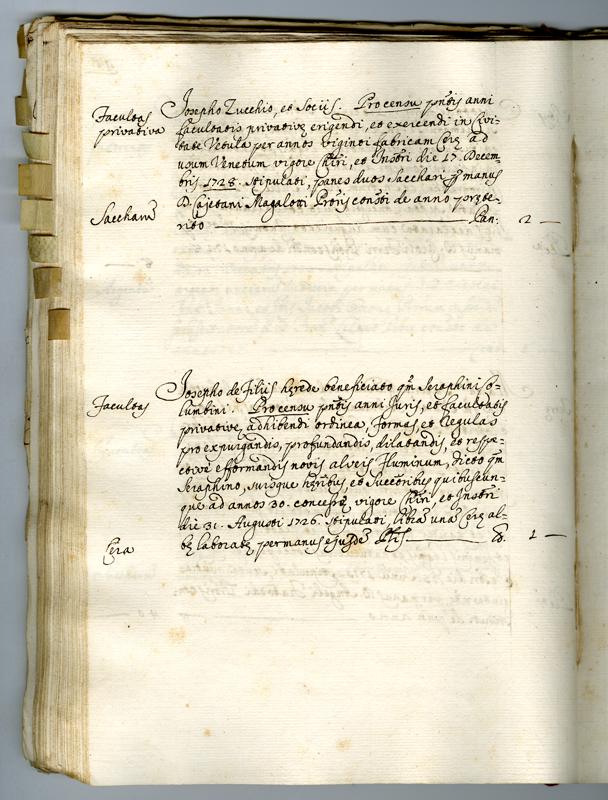 Facultas
privativa
Josepho Zucchio, et Sociis. Pro censu pñtis anni
facultatis privativę erigendi, et exercendi in Civi-
tate Vetula per annos viginti fabricam Cerę ad
usum Venetum vigore Chiri, et Instri die 17. Decem-
bris 1728. stipulati, panes duos Sacchari p̃ manus
D. Cajetani Magalotti Prõris constñ de anno pręte-
rito — Pan: 2 —
Saccharũ
Facultas
Josepho de Filiis hęrede beneficiato qm̃ Seraphini Co-
lumbini. Pro censu pñtis anni Juris, et facultatis
privativę adhibendi ordinea, formas, et Regulas
pro expurgandis, profundandis, dilatandis, et respe-
ctivè efformandis novis alveis fluminum, dicto qm̃
Seraphino, suisque hęribus, et Succribus quibuscun-
que ad annos 30. concessę vigore Chiri et Instri
die 31. Augusti 1726. stipulati, libra una Cerę al-
bę laboratę per manus ejusdẽ — lb. 1 —
Cera